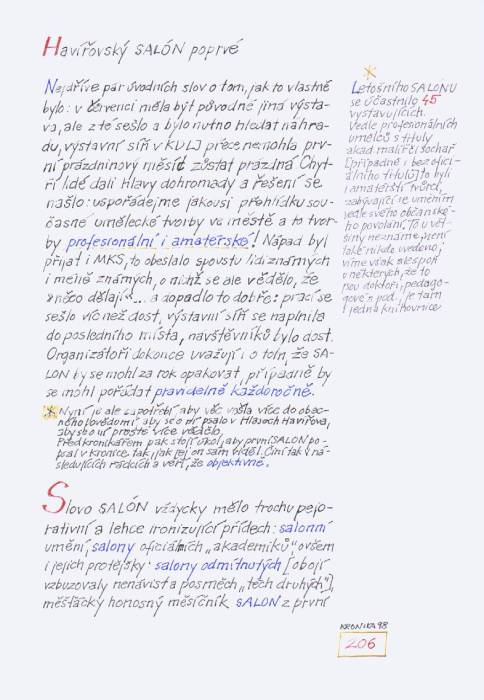 Havířovský SALÓN poprvé
Nejdříve pár úvodních slov o tom, jak to vlastně
bylo: v červenci měla být původně jiná výsta-
va, ale z té sešlo a bylo nutno hledat náhra-
du, výstavní síň v KULJ přece nemohla prv-
ní prázdninový měsíc zůstat prázdná. Chyt-
ří lidé dali hlavy dohromady a řešení se
našlo: uspořádejme jakousi přehlídku sou-
časné umělecké tvorby ve městě a to tvor-
by profesionální i amatérské! Nápad byl
přijat i MKS, to obeslalo spoustu lidí známých
i méně známých, o nichž se ale vědělo, že
"něco dělají"... a dopadlo to dobře: prací se
sešlo víc než dost, výstavní síň se naplnila
do posledního místa, návštěvníků bylo dost.
Organizátoři dokonce uvažují i o tom, že SA-
LÓN by se mohl za rok opakovat, případně by
se mohl pořádat pravidelně každoročně.
Nyní je ale zapotřebí aby věc vešla více do obec-
ného povědomí, aby se o ní psalo v Hlasech Havířova,
aby se o ní prostě více vědělo.
Před kronikářem pak stojí úkol, aby první SALÓN po-
psal v kronice tak, jak jej on sám viděl. Činí tak v ná-
sledujících řádcích a věří, že objektivně.
Slovo SALÓN vždycky mělo trochu pejo-
rativní a lehce ironizující přídech: salonní
umění, salony oficiálních „akademiků", ovšem
i jejich protějšky: salony odmítnutých [obojí
vzbuzovaly nenávist a posměch „těch druhých"],
měšťácký honosný měsíčník SALON z první
Letošního SALÓNU
se účastnilo 45
vystavujících.
Vedle profesionálních
umělců s tituly
akad. malíř i sochař
[případně i bez ofici-
álního titulu] to byli
i amatérští tvůrci,
zabývající se uměním
vedle svého občanské-
ho povolání. To u vět-
šiny neznáme, není
také nikde uvedeno,
víme však alespoň
u některých, že to
jsou doktoři, pedago-
gové a pod. je tam
i jedna knihovnice
KRONIKA 98
206